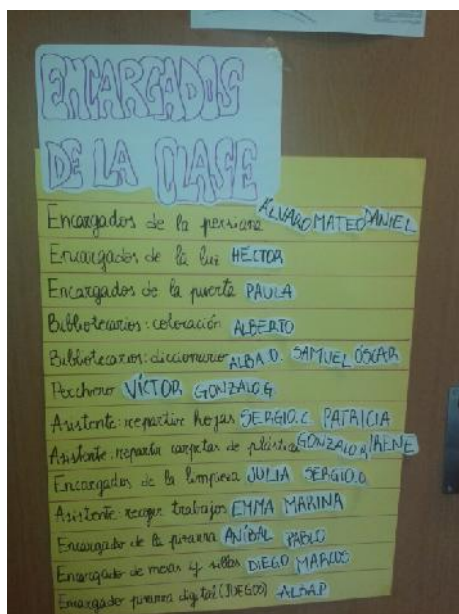 ENCARGADOS
DE LA CLASE
Encargados de la persiana ÁLVARO MATEO DANIEL
Encargados de la luz HÉCTOR
Encargados de la puerta PAULA
Bibliotecarios: colocación ALBERTO
Bibliotecarios: diccionario ALBA.O. SAMUEL ÓSCAR
Perchero VÍCTOR GONZALO.G.
Asistente: repartir hojas SERGIO.C. PATRICIA
Asistente: repartir carpetas de plástico GONZALO IRENE
Encargados de la limpieza JULIA SERGIO.O.
Asistente: recoge trabajos EMMA MARINA
Encargado de la pizarra ANÍBAL PABLO
Encargado de mesas y sillas DIEGO MARCOS
Encargado pizarra digital (JUEGOS) ALBA.P